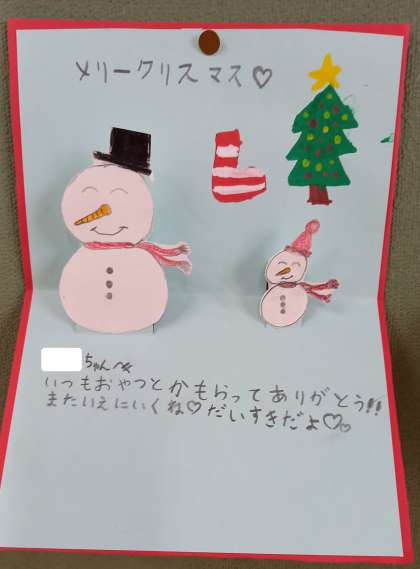 メリークリスマス♡
ちゃんへ
いつもおやつとかもらってありがとう!!
またいえにいくね♡だいすきだよ♡♡